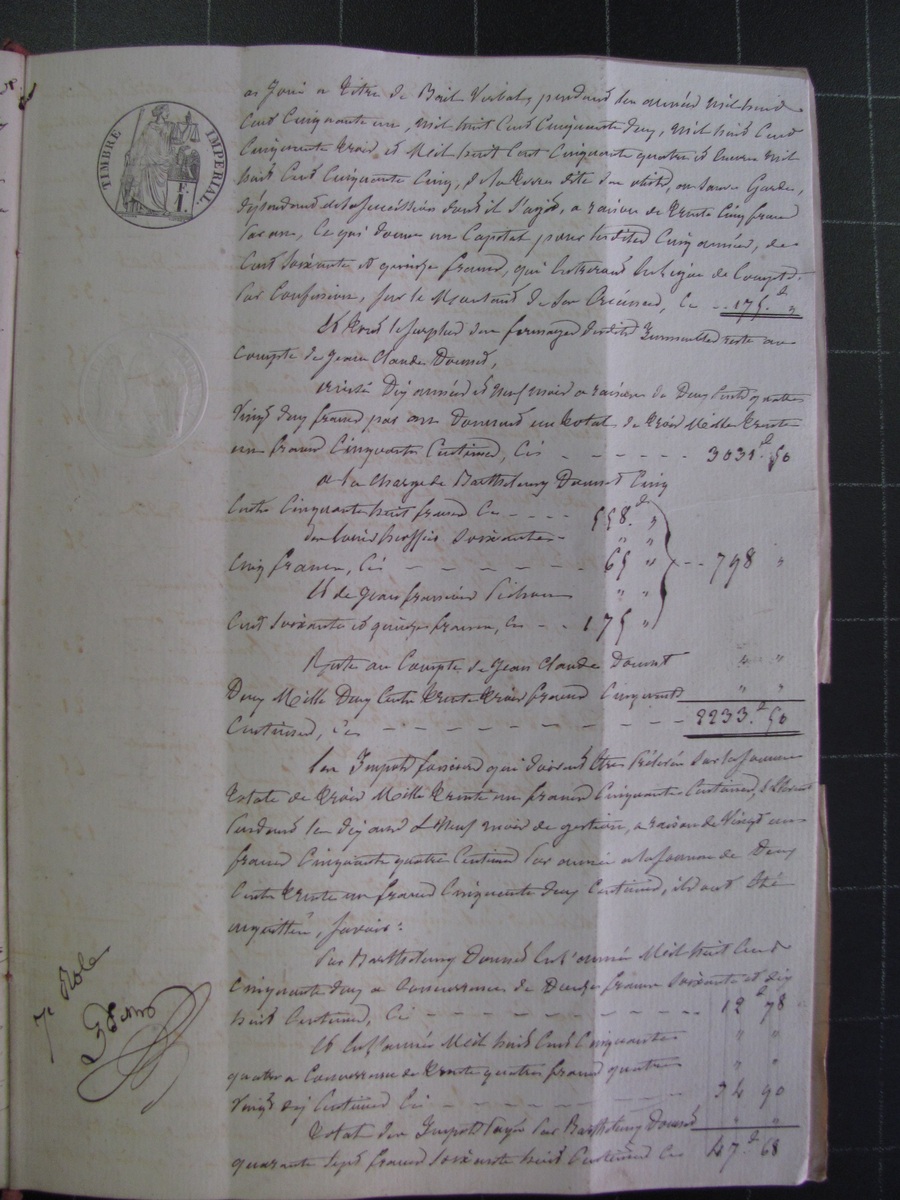 TIMBRE IMPERIAL.
a joui a titre de Bail Verbal, pendant les années mil huit
Cent Cinquante un, mil huit Cent Cinquante deux, mil huit Cent
Cinquante trois, et Mil huit Cent Cinquante quatre et Encore mil
huit Cent Cinquante Cinq, de la terre dite
dépendant de la succession dont il s'agit, a raison de trente Cinq francs
par an, Ce qui donne un Capital pour lesdites Cinq années, de
Cent soixante et quinze francs, qui en ligne de Compte
par Confusion, sur le Montant de Ces Créances, Ci -- 175. f "
Et tout le surplus des fermages desdits Immeubles reste au
Compte de Jean Claude Donnet,
dix années et neuf mois a raison de Deux Cents quatre
Vingt deux francs par an Donnent un total de trois Mille trente
un francs Cinquante Centimes, Ci - - - - - - 3031. f 50
a la charge de Barthelemy Donnet Cinq
Cents Cinquante huit francs Ci - - - - 558. f "
soixante
Cinq francs, Ci - - - - - - - 65 " - - 798 "
Et de Jean François
Cent soixante et quinze francs, Ci - - 175 "
Reste au Compte de Jean Claude Donnet " "
Deux Mille Deux Cents trente trois francs Cinquante " "
Centimes, Ci - - - - - - - - - - - - 2233. f 50
Les Impots fonciers qui doivent être prélevés sur la somme
totale de trois Mille trente un francs Cinquante Centimes,
pendant les dix ans & Neuf mois de gestion, a raison de Vingt un
francs Cinquante quatre Centimes par année a la somme de Deux
Cents trente un francs Cinquante deux Centimes, ils ont été
acquittés, savoir :
Par Barthelemy Donnet en l'année Mil huit Cent
Cinquante deux a Concurrence de Douze francs soixante et dix
huit Centimes, Ci - - - - - - - - - - - 12 f 78
Et en l'année Mil huit Cent Cinquante " "
quatre a Concurrence de trente quatre francs quatre " "
Vingt dix Centimes Ci - - - - - - - 34 90
Total des Impots payés par Barthelemy Donnet " "
quarante sept francs soixante huit Centimes Ci 47 f 68
7e Role